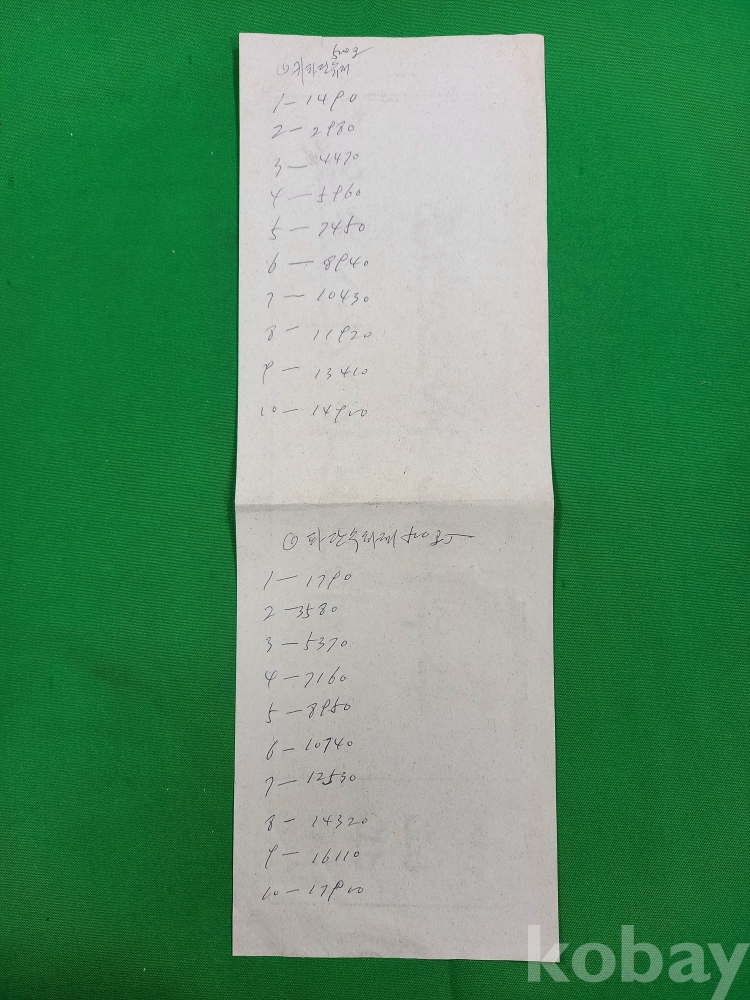 1 - 1490
2 - 2980
3 - 4470
4 - 5960
5 - 7450
6 - 8940
7 - 10430
8 - 11920
9 - 13410
10 - 14900
1 - 1790
2 - 3580
3 - 5370
4 - 7160
5 - 8950
6 - 10740
7 - 12530
8 - 14320
9 - 16110
10 - 17900
kobay